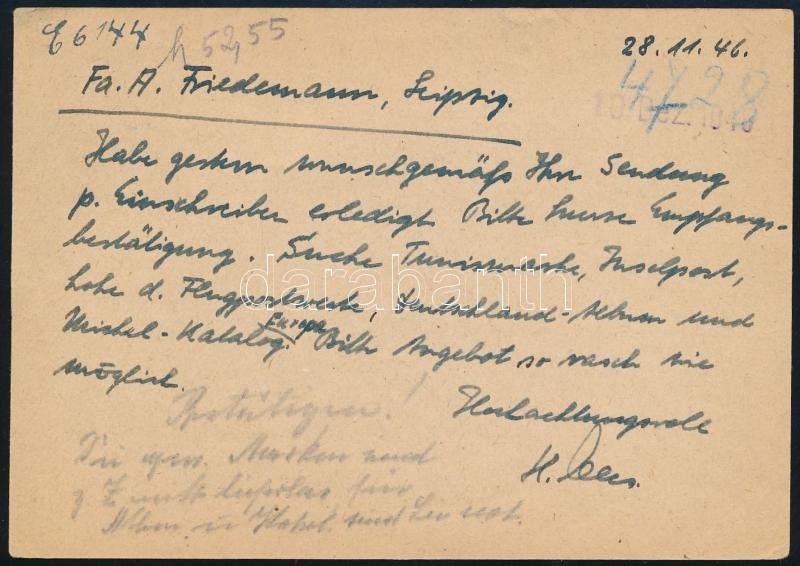 E 6144 h 52,55
28.11.46.
4728
10. Dez. 1946
Fa. A. Friedemann, Leipzig.
Habe gestern wunschgemäß Ihre Sendung
p. Einschreiben erledigt. Bitte kurze Empfangs-
bestätigung. Suche Tunismarke, Inselpost,
hohe d. Flugpostwerte, Deutschland-Album und
Michel-Katalog Europa. Bitte Angebot so rasch wie
möglich.
Hochachtungsvoll
H.
Bestätigen!
Die gen. Marken sind
z Z nicht lieferbar für
Album u Katal. sind
darabanth